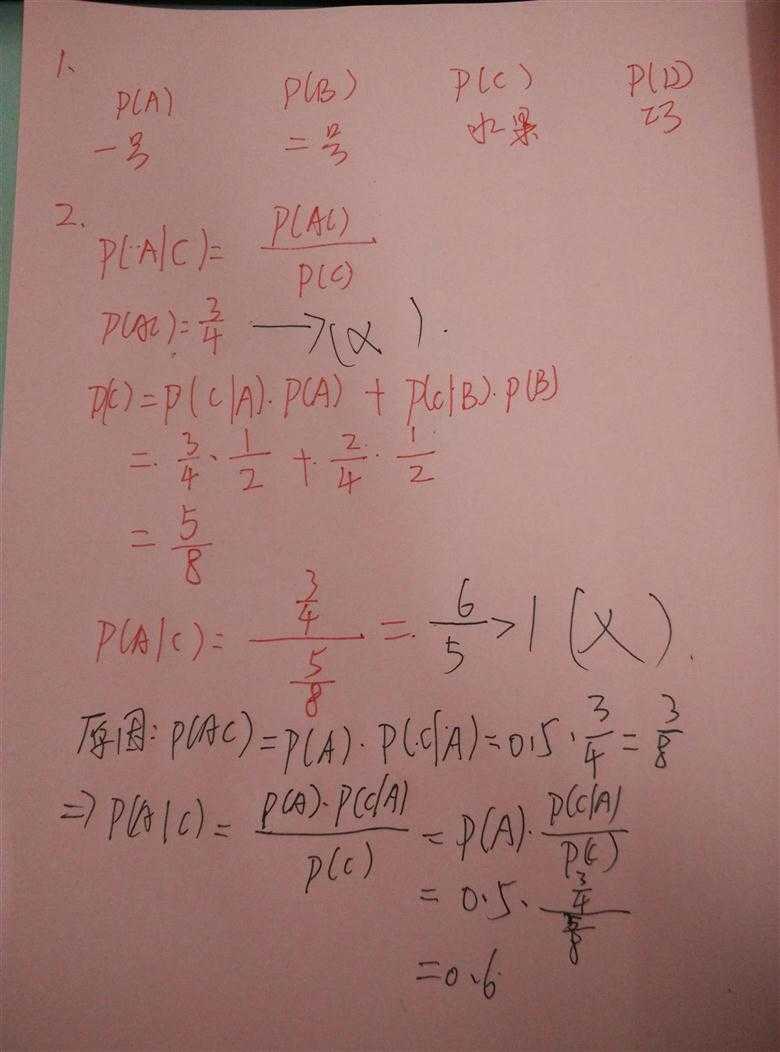 1、
P(A) P(B) P(C) P(D)
一号 二号 水果 巧
2.
P(A|C)= P(AC)/P(C)
P(AC)=3/4 →(×).
P(C)=P(C|A)·P(A)+P(C|B)·P(B)
=3/4·1/2+2/4·1/2
=5/8
P(A|C)=3/4/5/8=6/5>1(×).
原因:P(AC)=P(A)·P(C|A)=0.5·3/4=3/8
⇒P(A|C)=P(A)·P(C|A)/P(C)=P(A)·P(C|A)/P(C)
=0.5·3/4/5/8
=0.6